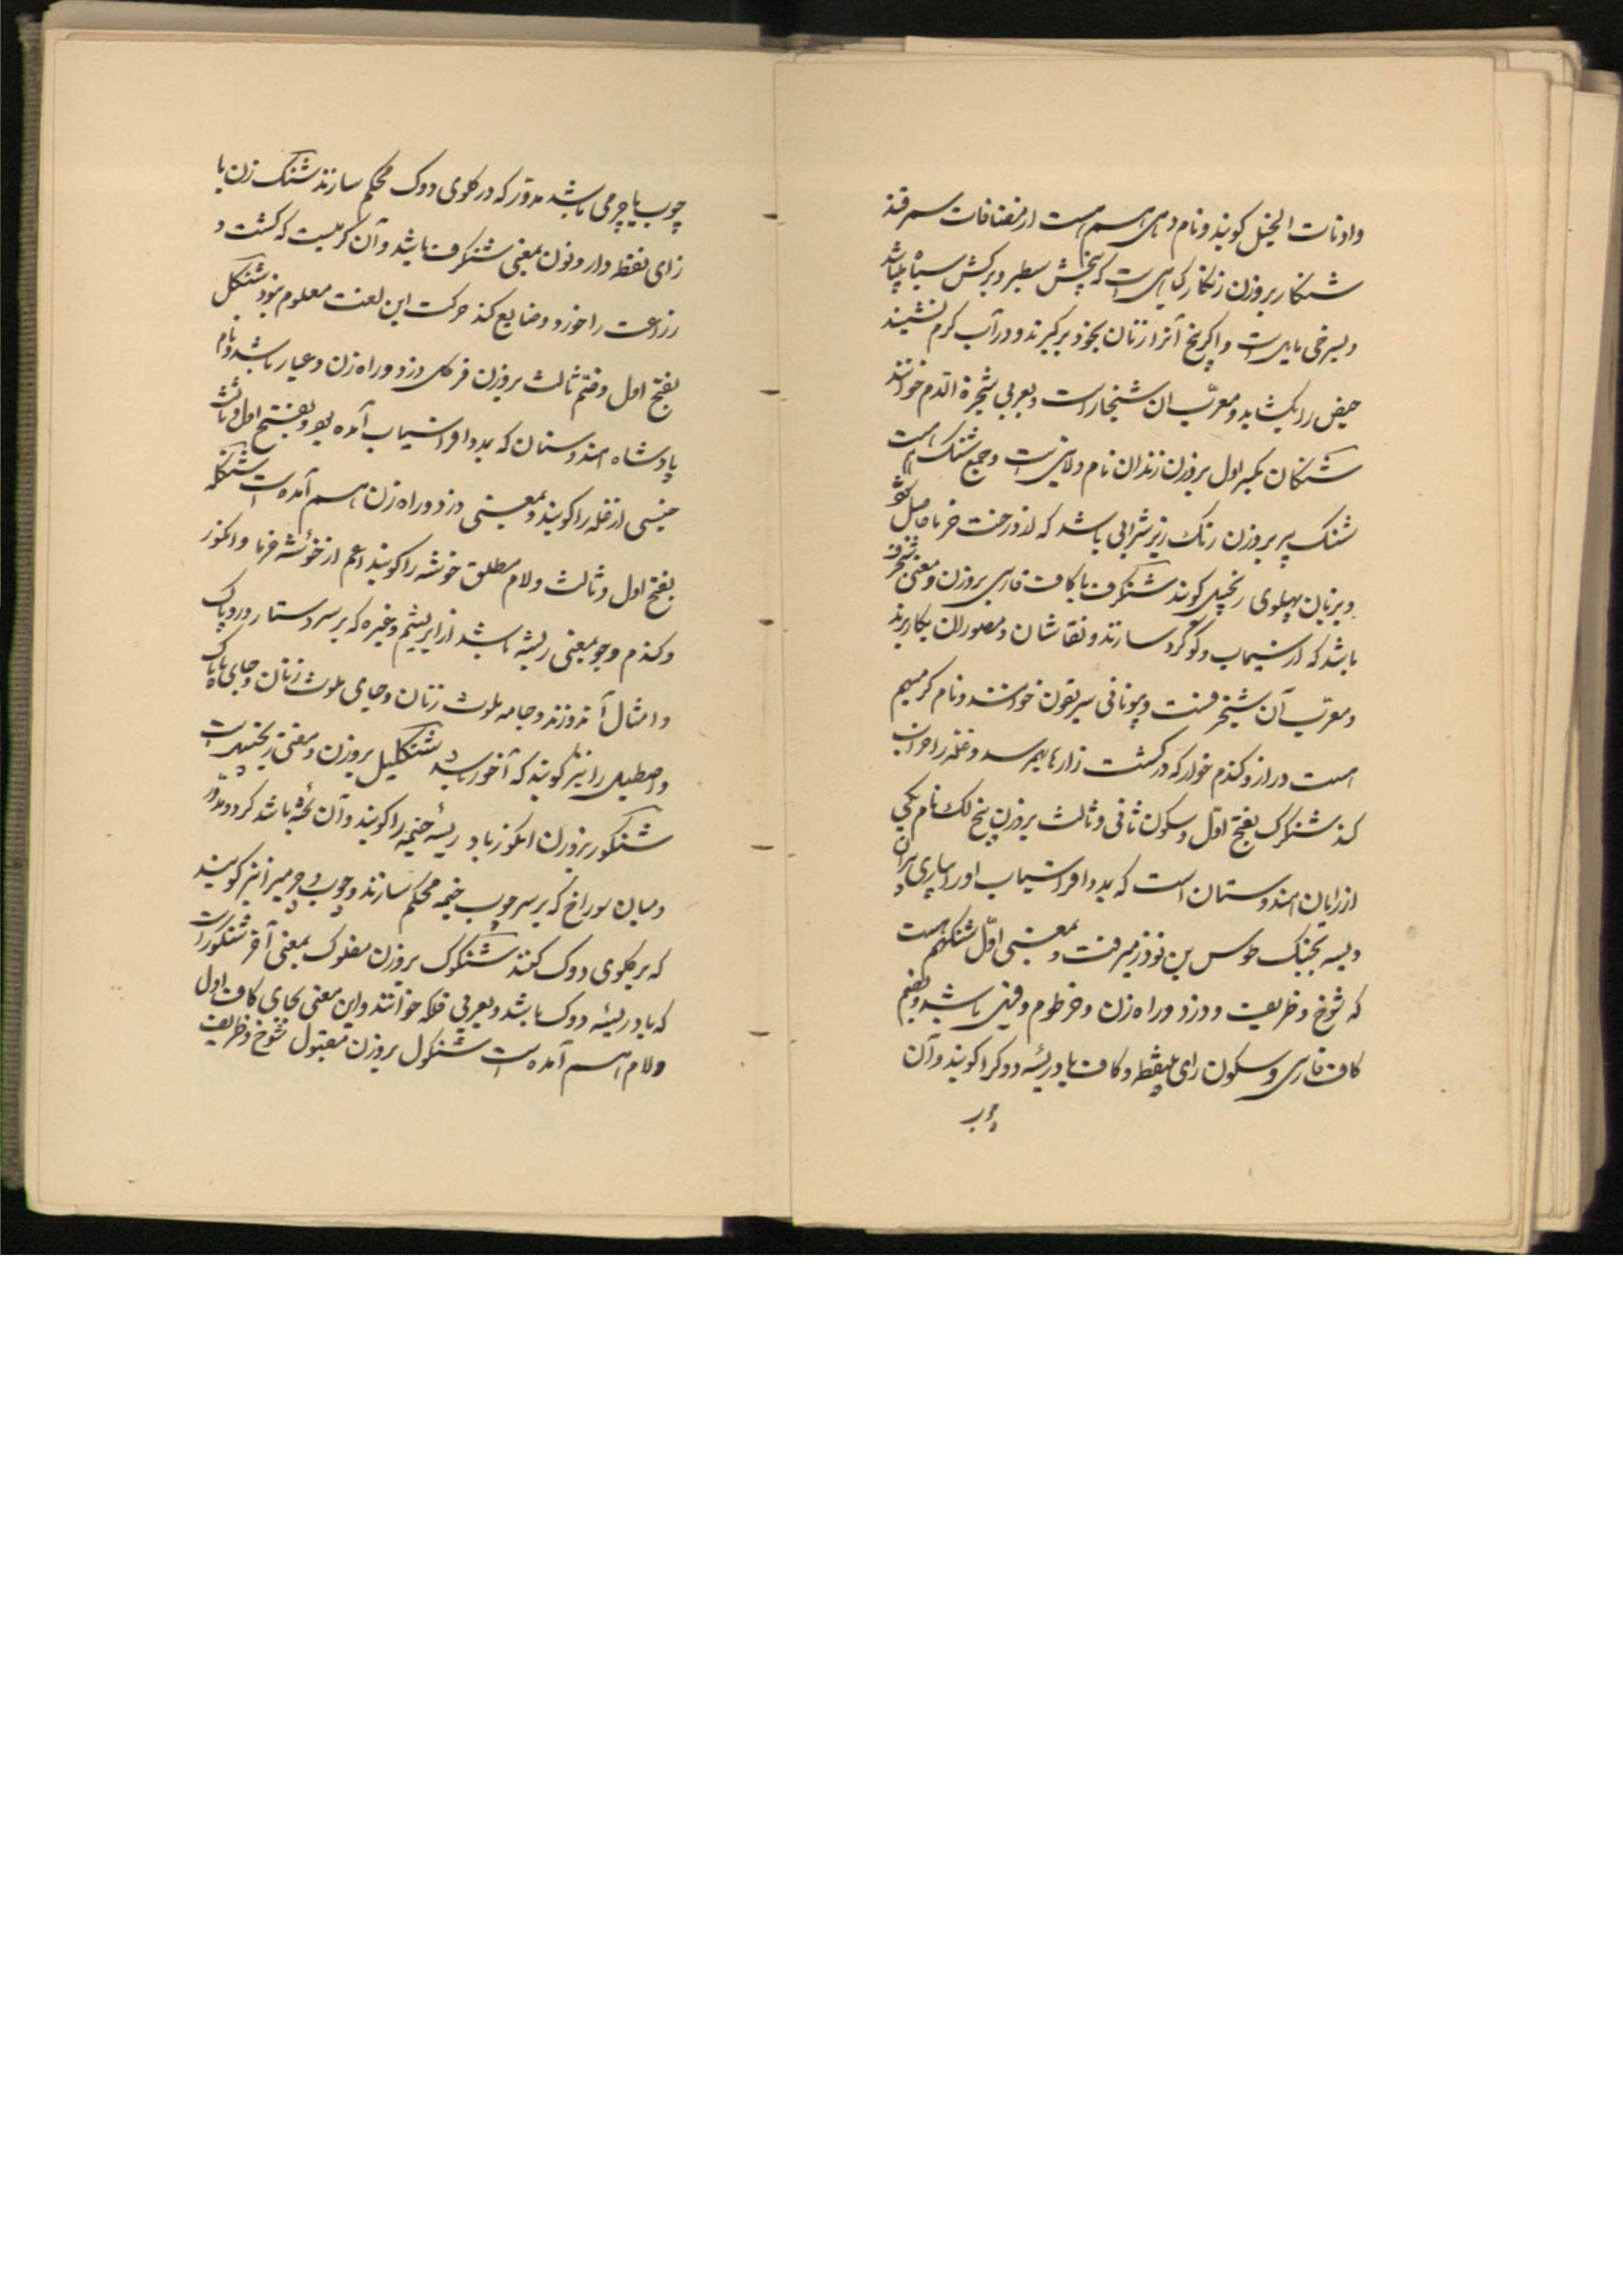 واذناب الخیل کویند و نام دهی هم هست از مضافات سمرقند
شنکار بروزن زنکار کیاهی است که بیخش سطبر و برکش سیاه باشد
و بسرخی مایل است و اکر بیخ آنرا زنان بخود برکیرند و در آب کرم نشینند
حیض را بکشاید و معرّب ان شنجار است و بعربی شجرة الدم خوانند
شنکان بکسر اول بروزن زندان نام ولایتی است و جمع شنک هست
شنک بیر بروزن رنک ریز شرابی باشد که از درخت خرما حاصل شود
و بزبان پهلوی زنجبیل کویند شنکرف با کاف فارسی بروزن و معنی شنجرف
باشد که از سیماب و کوکرد سازند و نقاشان و مصوران بکار برند
و معرّب آن شنجرفست و بیونانی سریقون خوانند و نام کرمی هم
هست دراز و کندم خوار که در کشت زارها بهم رسد و غله را خراب
کند شنکرک بفتح اوّل و سکون ثانی و ثالث بروزن پنج لک نام یکی
از رایان هندوستان است که بمدد افراسیاب اورا بیاری پیران
ویسه بجنک طوس بن نوذر میرفت و بمعنی اوّل شنکل هم هست
که شوخ و ظریف و دزد و راه زن و خرطوم فیل باشد و بضم
کاف فارسی و سکون رای بی نقطه و کاف بادریسه دوکرا کویند و آن
چوب
چوب یا چرمی باشد مدوّر که در کلوی دوک محکم سازند شنک زن با
زای نقطه دار و نون بمعنی شنکرف باشد و آن کرمیست که کشت و
زراعت را خورد و ضایع کند حرکت این لغت معلوم نبود شنکل
بفتح اول و ضم ثالث بروزن فرکل دزد و راه زن و عیار باشد و نام
پادشاه هندوستان که بمدد افراسیاب آمده بود و بفتح اول و ثالث
جنسی از غله را کویند و بمعنی دزد و راه زن هم آمده است شنکله
بفتح اول و ثالث و لام مطلق خوشه را کویند اعم از خوشه خرما و انکور
و کندم و جو بمعنی ریشه باشد از ابریشم و غیره که بر سر دستار و روپاک
و امثال آن دوزند و جامه ملوث زنان و جای ملوث زنان و جای ناپاک
و اصطبل را نیز کویند که آخور باشد شنکلیل بروزن و معنی زنجبیل است
شنکور بروزن انکور باد ریسه خیمه را کویند و آن تخته باشد کرد و مدوّر
و میان سوراخ که بر سر چوب خیمه محکم سازند و چوب و چرمیرا نیز کویند
که بر کلوی دوک کنند شنکوک بروزن مفلوک بمعنی آخر شنکور است
که بادریسه دوک باشد و بعربی فلکه خوانند و این معنی بجای کاف اول
و لام هم آمده است شنکول بروزن مقبول شوخ و ظریف